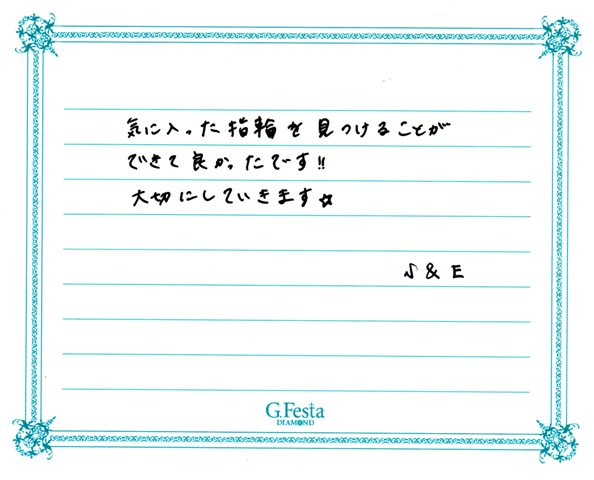 気に入った指輪を見つけることが
できて良かったです!!
大切にしていきます☆
S & E
G.Festa
DIAMOND